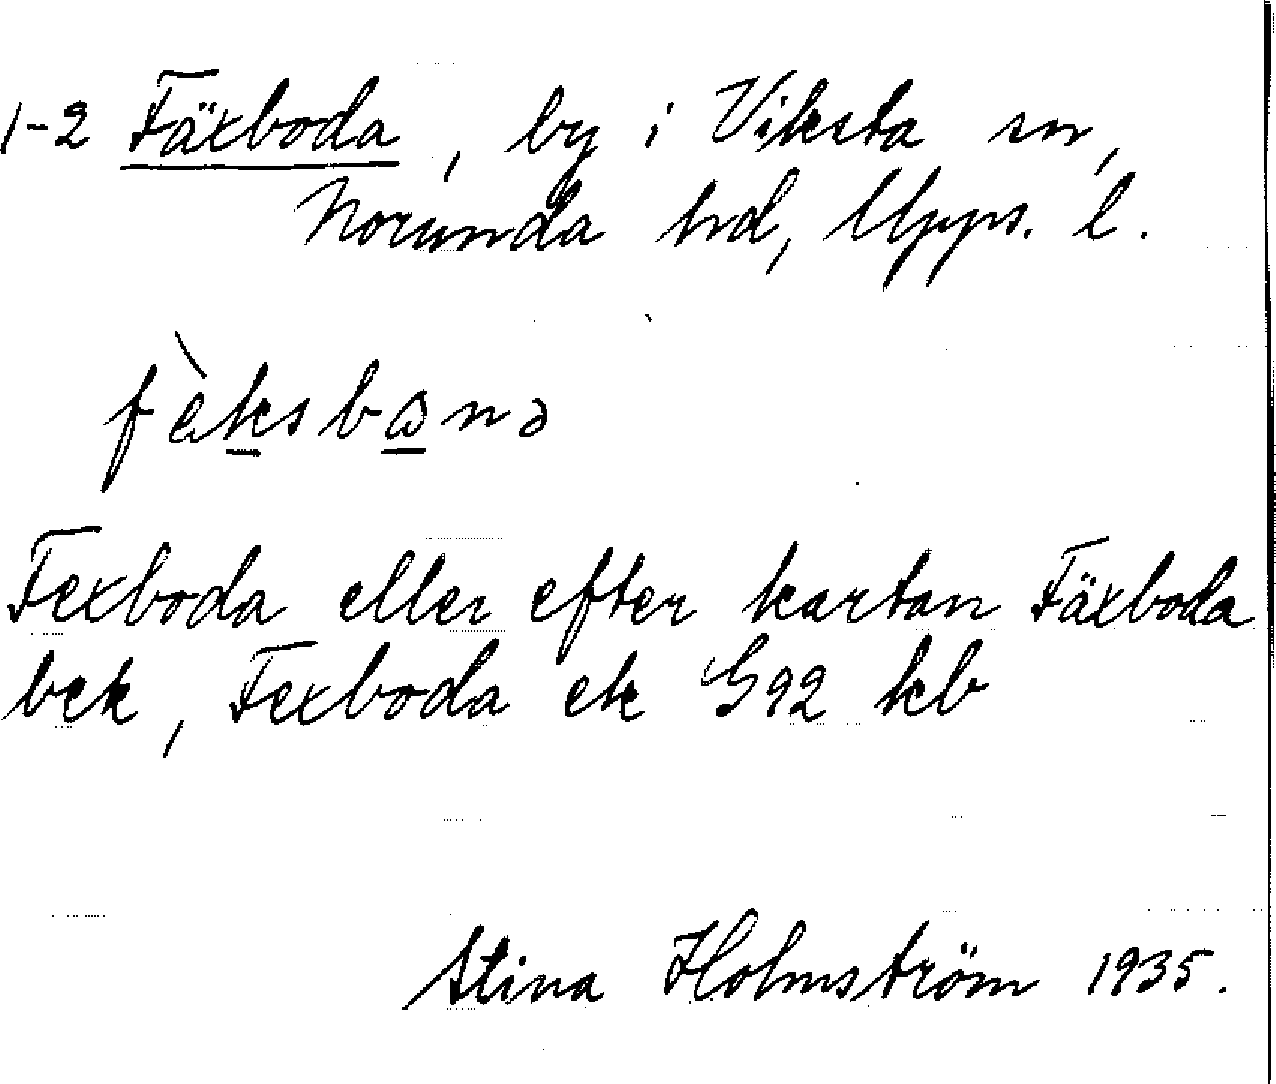 1-2 Fäxboda, by i Viksta sn,
Norunda hd, Upps. l.
fèksbɷnə
Fexboda eller efter kartan Fäxboda
bek, Fexboda ek G92 kb
Stina Holmström 1935.